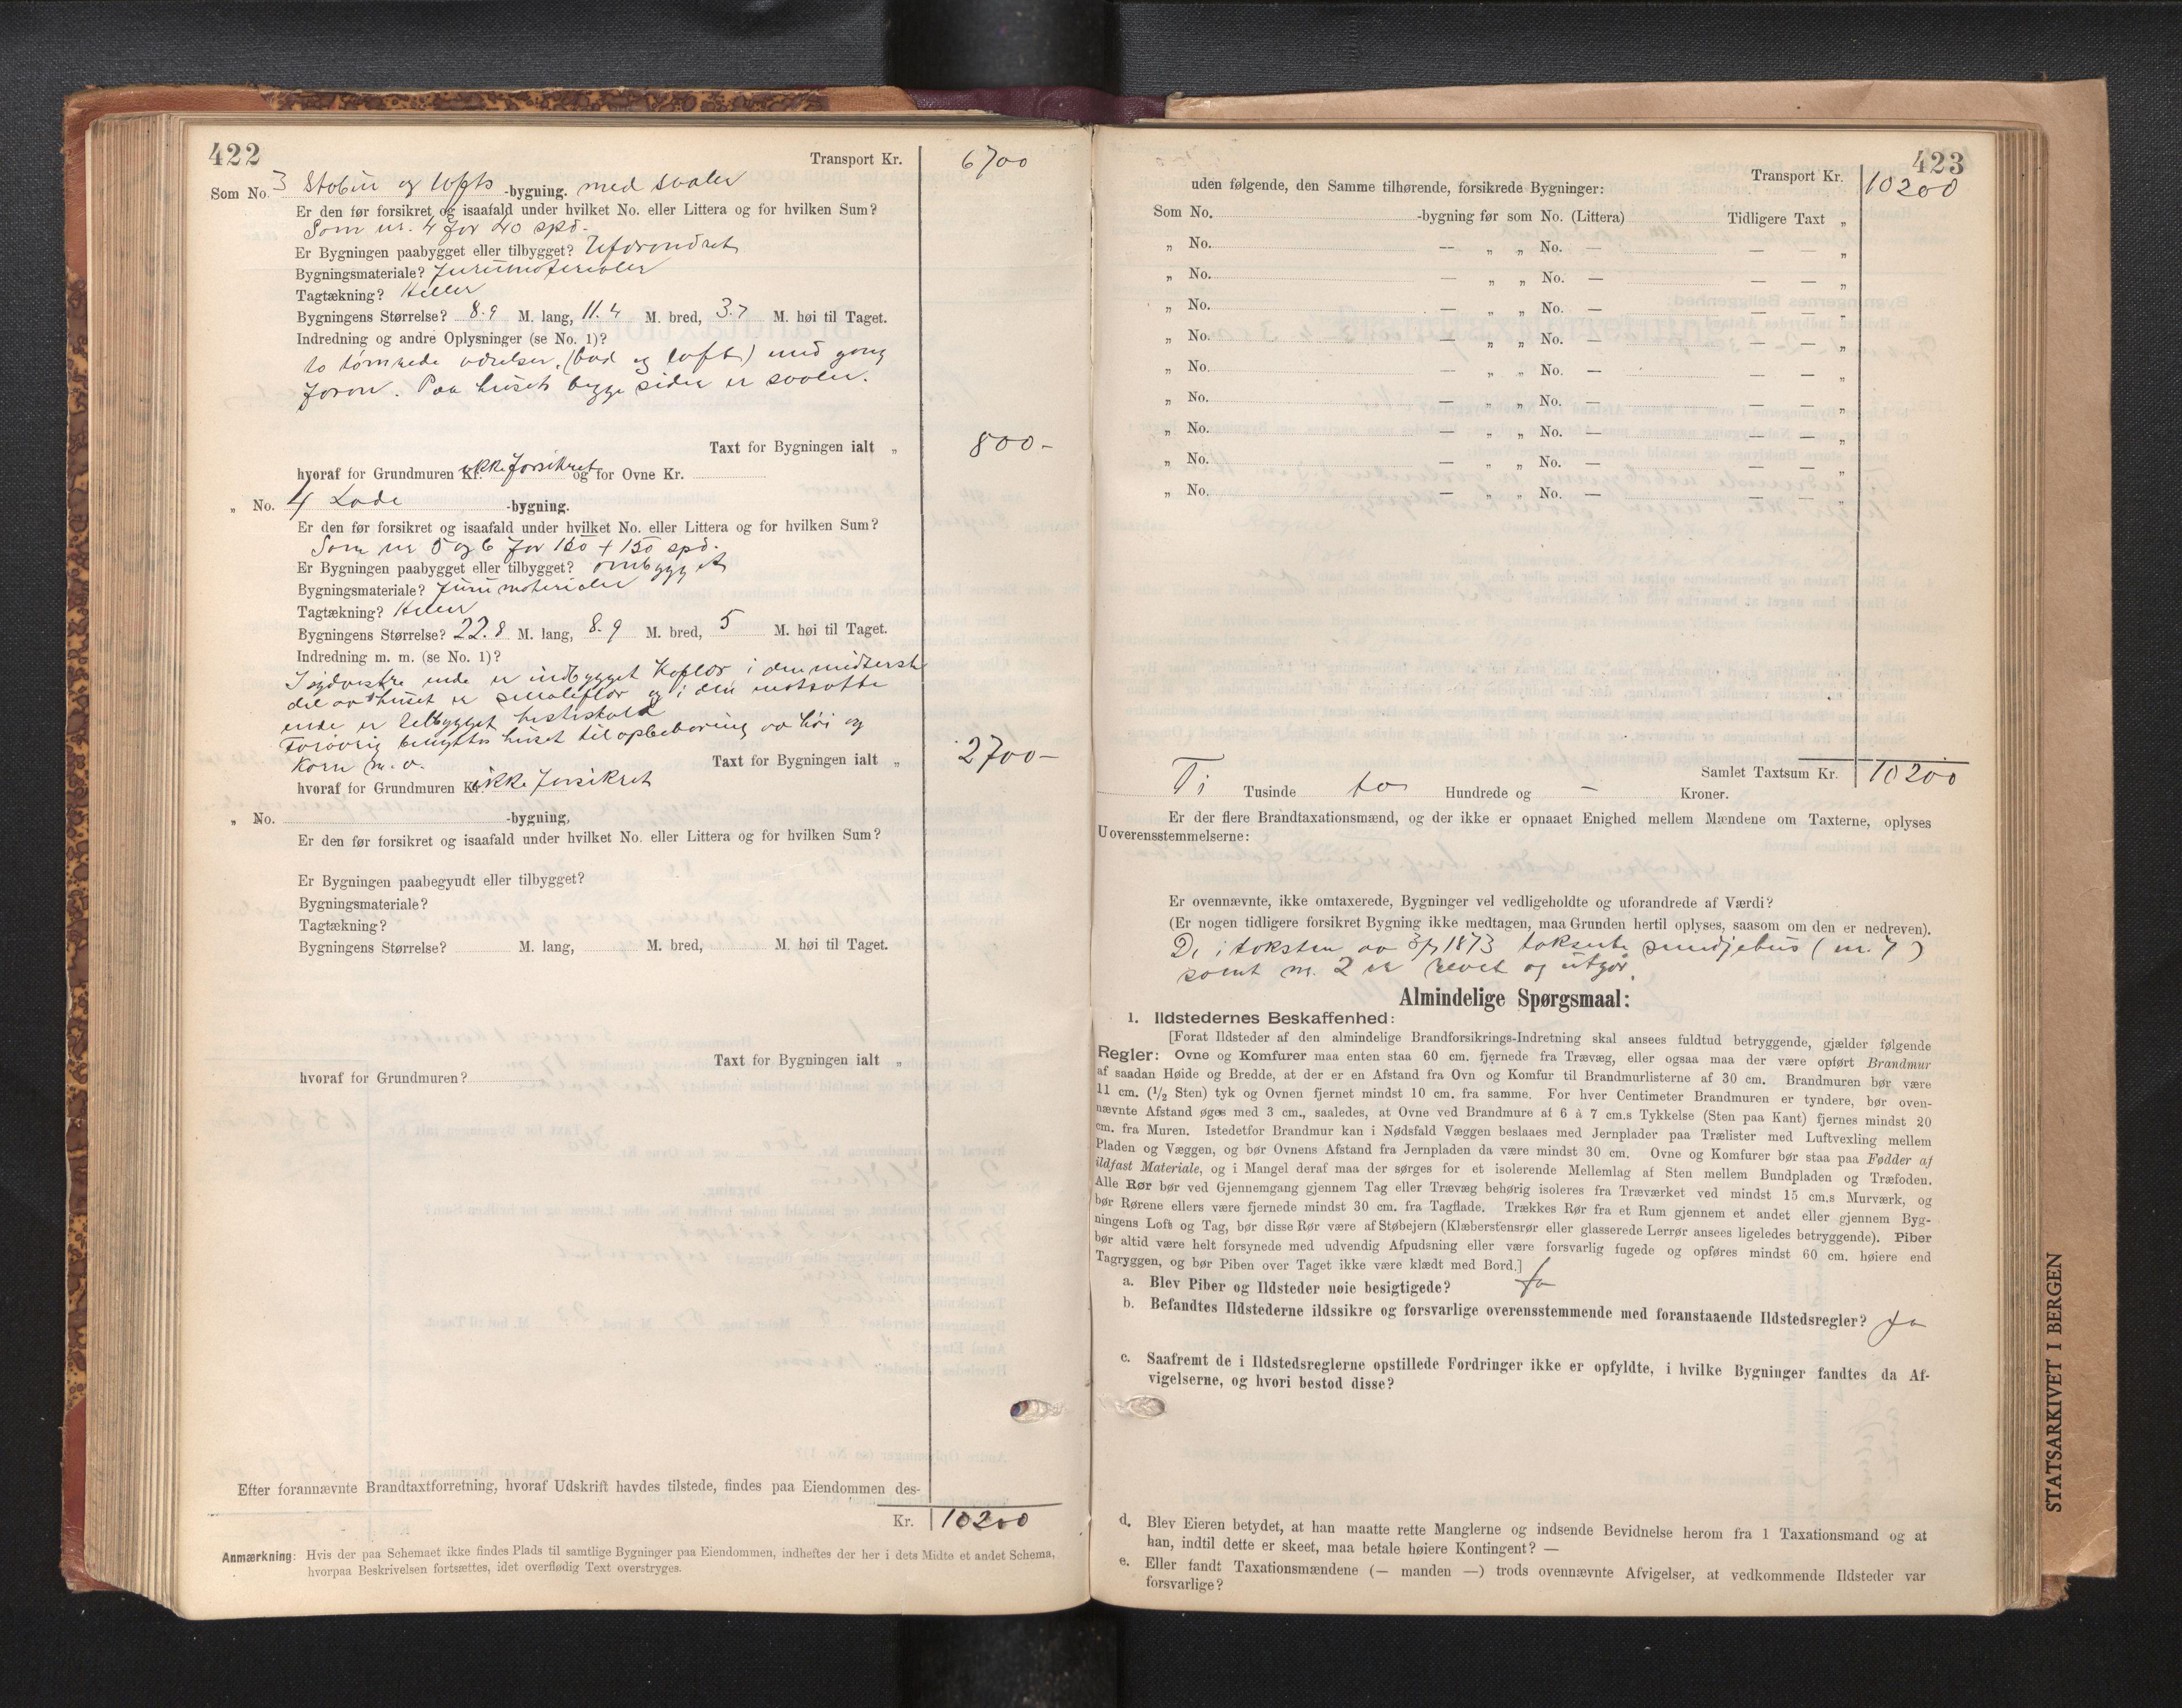 422
Transport Kr. 6700
Som No. 3 Stobur og lofts -bygning. med svaler
Er den før forsikret og isaafald under hvilket No. eller Littera og for hvilken Sum?
Som nr. 4 for 40 spd.
Er Bygningen paabygget eller tilbygget? Uforandret
Bygningsmateriale? Furumaterialer
Tagtækning? Heller
Bygningens Størrelse? 8.9 M. lang, 11.4 M. bred, 3.7 M. høi til Taget.
Indredning og andre Oplysninger (se No. 1)?
to tømrede værelser, (bod og loft) med gang
foran. Paa husets begge sider er svaler.
Taxt for Bygningen ialt „ 800-
hvoraf for Grundmuren Kr. ikke forsikret og for Ovne Kr.
„ No. 4 Lade -bygning.
Er den før forsikret og isaafald under hvilket No. eller Littera og for hvilken Sum?
Som nr 5 og 6 for 150 + 150 spd.
Er Bygningen paabygget eller tilbygget? ombygget
Bygningsmateriale? Furumaterialer
Tagtækning? Heller
Bygningens Størrelse? 22.8 M. lang, 8.9 M. bred, 5 M. høi til Taget.
Indredning m. m. (se No. 1)?
I sydvestre ende er indbygget Koflor i den midterste
del av huset er smaleflor og i den motsatte
ende er tilbygget hestestald
Forøvrig benyttes huset til opbevaring av høi og
Korn m. v.
Taxt for Bygningen ialt „ 2700-
hvoraf for Grundmuren Kr. ikke forsikret
„ No. -bygning,
Er den før forsikret og isaafald under hvilket No. eller Littera og for hvilken Sum?
Er Bygningen paabegyndt eller tilbygget?
Bygningsmateriale?
Tagtækning?
Bygningens Størrelse? M. lang, M. bred, M. høi til Taget.
Taxt for Bygningen ialt „
hvoraf for Grundmuren?
Efter forannævnte Brandtaxtforretning, hvoraf Udskrift havdes tilstede, findes paa Eiendommen des-
Kr. 10200
Anmærkning: Hvis der paa Schemaet ikke findes Plads til samtlige Bygninger paa Eiendommen, indheftes der her i dets Midte et andet Schema,
hvorpaa Beskrivelsen fortsættes, idet overflødig Text overstryges.
423
Transport Kr. 10200
uden følgende, den Samme tilhørende, forsikrede Bygninger:
Som No. -bygning før som No. (Littera) Tidligere Taxt „
„ No. — „ „ No. — — — „
„ No. — „ „ No. — — — „
„ No. — „ „ No. — — — „
„ No. — „ „ No. — — — „
„ No. — „ „ No. — — — „
„ No. — „ „ No. — — — „
„ No. — „ „ No. — — — „
„ No. — „ „ No. — — — „
„ No. — „ „ No. — — — „
Samlet Taxtsum Kr. 10200
Ti Tusinde to Hundrede og - Kroner.
Er der flere Brandtaxationsmænd, og der ikke er opnaaet Enighed mellem Mændene om Taxterne, oplyses
Uoverensstemmelserne:
Er ovennævnte, ikke omtaxerede, Bygninger vel vedligeholdte og uforandrede af Værdi?
(Er nogen tidligere forsikret Bygning ikke medtagen, maa Grunden hertil oplyses, saasom om den er nedreven).
De i taksten av 3/7 1873 takserte smidjehus (nr. 7)
samt nr. 2 er revet og utgør.
Almindelige Spørgsmaal:
1. Ildstedernes Beskaffenhed:
[Forat Ildsteder af den almindelige Brandforsikrings-Indretning skal ansees fuldtud betryggende, gjælder følgende
Regler: Ovne og Komfurer maa enten staa 60 cm. fjernede fra Trævæg, eller ogsaa maa der være opført Brandmur
af saadan Høide og Bredde, at der er en Afstand fra Ovn og Komfur til Brandmurlisterne af 30 cm. Brandmuren bør være
11 cm. (1/2 Sten) tyk og Ovnen fjernet mindst 10 cm. fra samme. For hver Centimeter Brandmuren er tyndere, bør oven-
nævnte Afstand øges med 3 cm., saaledes, at Ovne ved Brandmure af 6 à 7 cm.s Tykkelse (Sten paa Kant) fjernes mindst 20
cm. fra Muren. Istedetfor Brandmur kan i Nødsfald Væggen beslaaes med Jernplader paa Trælister med Luftvexling mellem
Pladen og Væggen, og bør Ovnens Afstand fra Jernpladen da være mindst 30 cm. Ovne og Komfurer bør staa paa Fødder af
ildfast Materiale, og i Mangel deraf maa der sørges for et isolerende Mellemlag af Sten mellem Bundpladen og Træfoden.
Alle Rør bør ved Gjennemgang gjennem Tag eller Trævæg behørig isoleres fra Træværket ved mindst 15 cm.s Murværk, og
bør Rørene ellers være fjernede mindst 30 cm. fra Tagflade. Trækkes Rør fra et Rum gjennem et andet eller gjennem Byg-
ningens Loft og Tag, bør disse Rør være af Støbejern (Klæberstensrør eller glasserede Lerrør ansees ligeledes betryggende). Piber
bør altid være helt forsynede med udvendig Afpudsning eller være forsvarlig fugede og opføres mindst 60 cm. høiere end
Tagryggen, og bør Piben over Taget ikke være klædt med Bord.]
a. Blev Piber og Ildsteder nøie besigtigede? Ja
b. Befandtes Ildstederne ildssikre og forsvarlige overensstemmende med foranstaaende Ildstedsregler? Ja
c. Saafremt de i Ildstedsreglerne opstillede Fordringer ikke er opfyldte, i hvilke Bygninger fandtes da Af-
vigelserne, og hvori bestod disse?
d. Blev Eieren betydet, at han maatte rette Manglerne og indsende Bevidnelse herom fra 1 Taxationsmand og at
han, indtil dette er skeet, maa betale høiere Kontingent? —
e. Eller fandt Taxationsmændene (— manden —) trods ovennævnte Afvigelser, at vedkommende Ildsteder var
forsvarlige?
STATSARKIVET I BERGEN